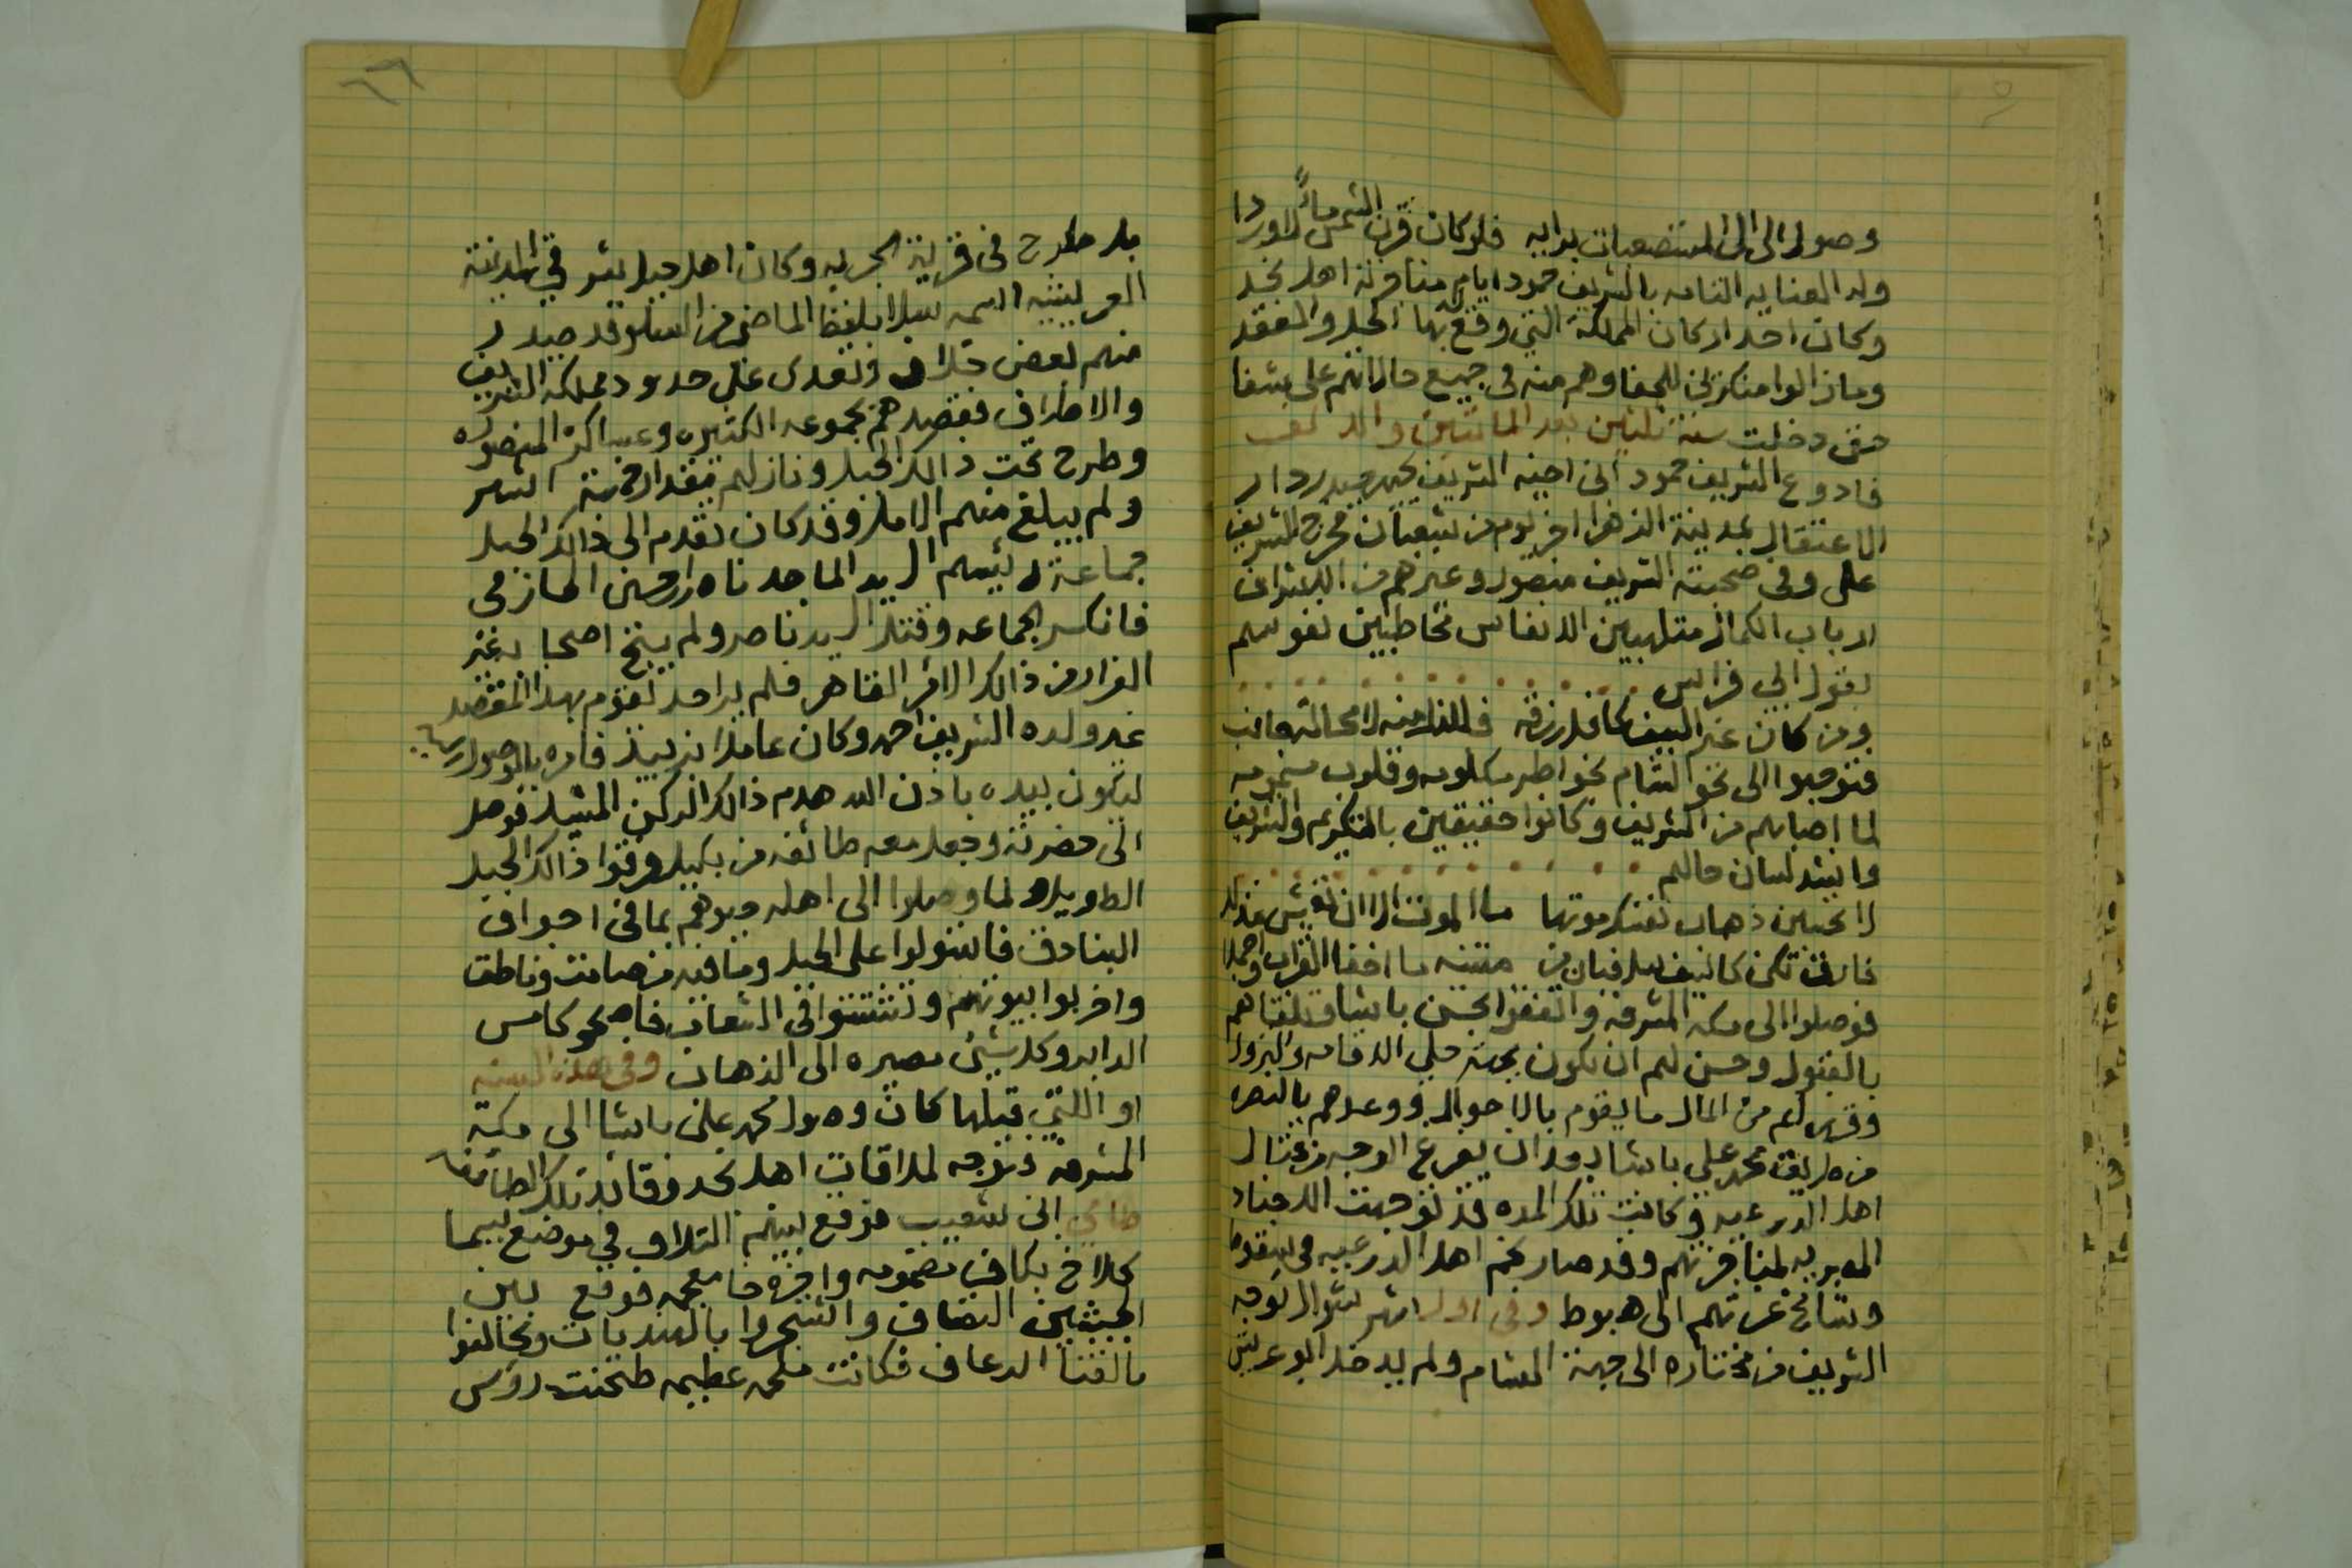 وصول الى المستصعبات برايه فلو كان قرن الشمس ماءً لاوردا
وله العنايه التامه بالشريف حمود ايام منافرته اهل نجد
وكان احد اركان المملكة التي وقع بها الحل والعقد
وما زالوا منكرين للجفا وهم منه في جميع حالاتهم على شفا
حتى دخلت سنة ثلثين بعد المائتين والالف
فادوع الشريف حمود ابن اخيه الشريف يحيى حيدر دار
الاعتقال بمدينة الزهرا اخر يوم من شعبان فخرج الشريف
علي وفي صحبته الشريف منصور وغيرهم من الاشراف
ارباب الكمال متلهبين الانفاس مخاطبين نفوسهم
بقول ابي فراس
ومن كان غير السيف كافل رزقه فللذل منه لا محالة جانب
فتوجهوا الى نحو الشام بخواطر مكلومه وقلوب
لما اصابهم من الشريف وكانوا حقيقين بالتكريم والتشريف
وانشد لسان حالهم
لا تحسبن ذهاب نفسك موتها ما الموت الا ان تعيش مذلل
فارق تكن كالسيف سل فبان في متنيه ما اخفا القراب واخملا
فوصلوا الى مكه المشرفه واتفقوا بحسن باشا وتلقاهم
بالقبول وحسن لهم ان يكون بمكة محل الاقامه والنزول
وقرر لهم من المال ما يقوم بالاحوال ووعدهم بالنصره
من طريق محمد علي باشا بعد ان يفرغ الوجه من قتال
اهل الدرعيه وكانت تلك المده قد توجهت الاجناد
المصريه لمنافرتهم وقد صار نجم اهل الدرعيه في سقوط
وشامخ عزتهم الى هبوط وفي اول شهر شوال توجه
الشريف من مختاره الى جهة الشام ولم يدخل ابو عريش
بل طرح في قرية البحريه وكان اهل جبل شرقي المدينة
العريشيه اسمه سلا بلفظ الماضي من السلو قد صدر
منهم بعض خلاف وتعدى على حدود مملكة الشريف
والاطراف فقصدهم بجموعه الكثيره وعساكره المنصوره
وطرح تحت ذالك الجبل ونازلهم مقدار خمسة اشهر
ولم يبلغ منهم الامل وقد كان تقدم الى ذالك الجبل
جماعة رئيسهم السيد الماجد ناصر بن حسن الحازمي
فانكسر الجماعه وقتل السيد ناصر ولم ينج اصحابه غير
الفرار من ذالك الامر القاهر فلم ير احد يقوم بهذا المقصد
غير ولده الشريف احمد وكان عاملا بزبيد فامره بالوصول
ليكون بيده باذن الله هدم ذالك الركن المشيد فوصل
الى حضرته وجعل معه طائفه من بكيل ورقوا ذالك الجبل
الطويل ولما وصلوا الى اهله حيوهم بما في اجواف
البنادق فاستولوا على الجبل وما فيه من صامت وناطق
واخربوا بيوتهم وتشتتوا في الشعاب فاصبحو كامس
الدابر وكل شيئ مصيره الى الذهاب وفي هذه السنه
او اللتي قبلها كان وصول محمد علي باشا الى مكة
المشرفه وتوجه لملاقات اهل نجد وقائد تلك الطائفه
طامي ابن شعيب فوقع بينهم التلاق في موضع يسما
كلاخ بكاف مضمومه واخره خا معجمه فوقع بين
الجيشين المصاف واشتجروا بالهنديات وتخالفوا
بالقنا الرعاف فكانت ملحمه عظيمه طحنت رؤس